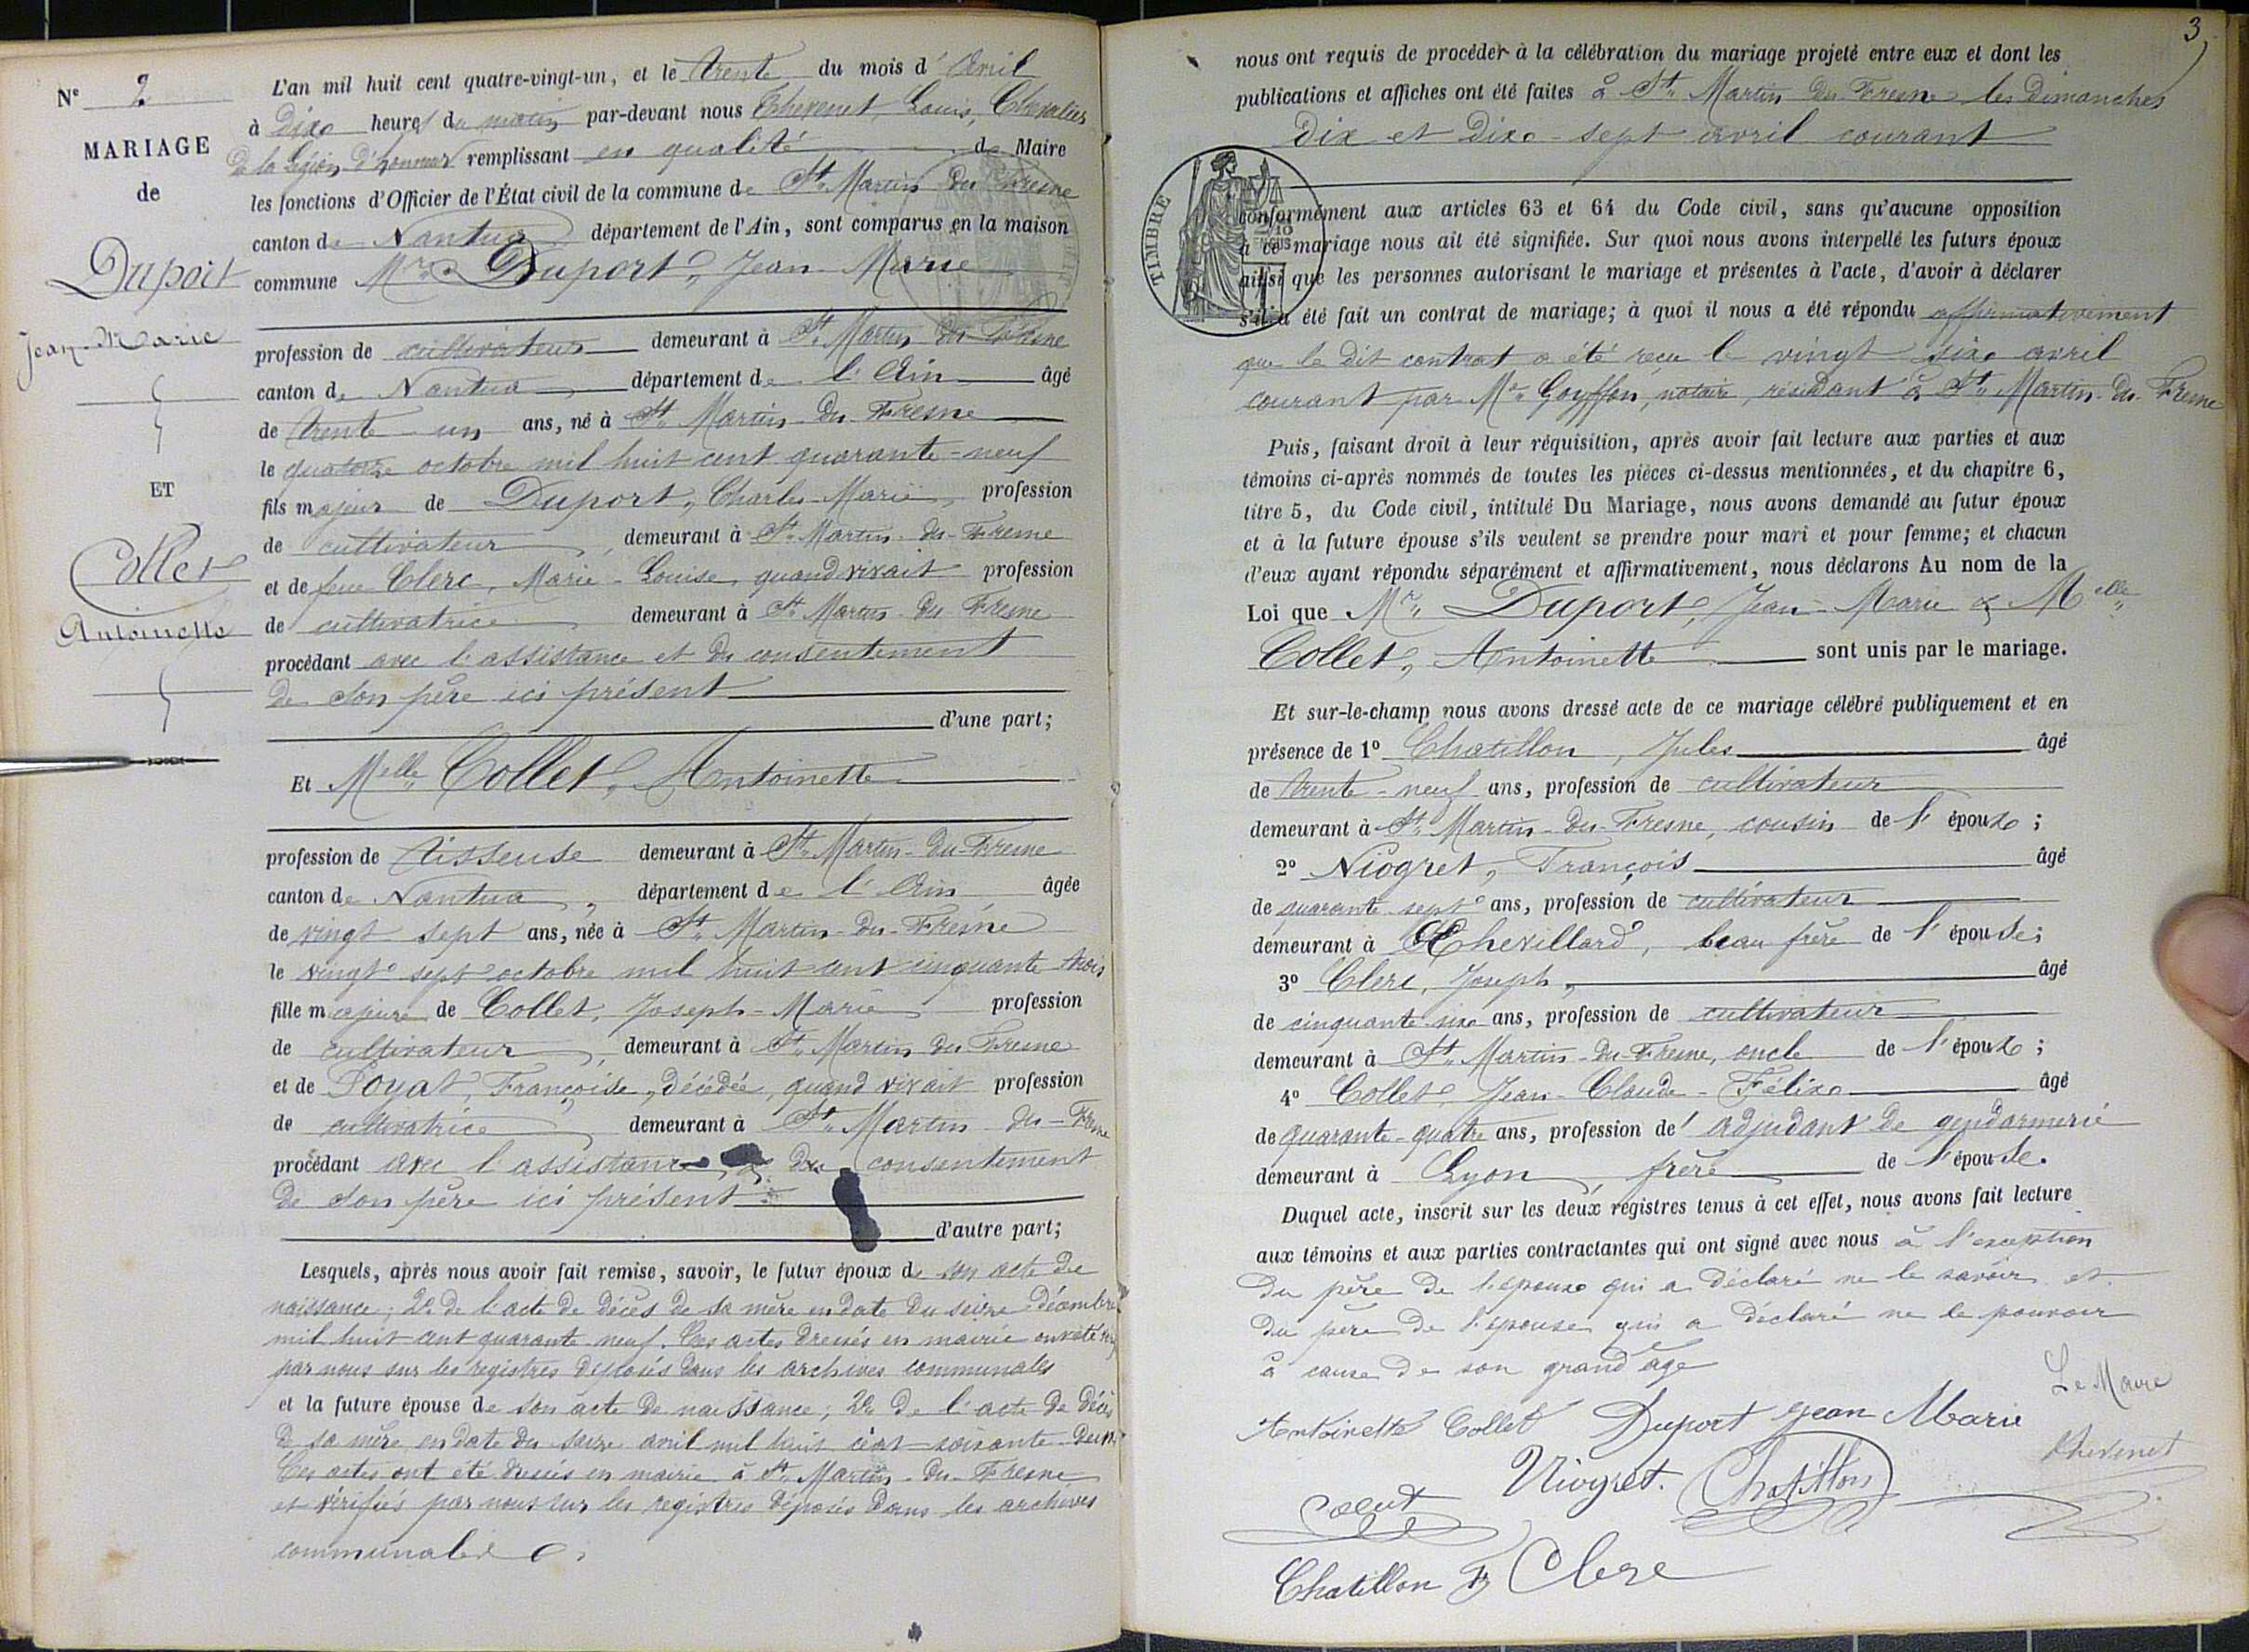 N° 2
MARIAGE
de
Duport
Jean-Marie
ET
Collet
Antoinette
L'an mil huit cent quatre-vingt-un, et le trente du mois d'Avril
à Dix heures du matin par-devant nous Thevenet, Louis, Chevalier
de la Légion d'honneur remplissant en qualité de Maire
les fonctions d'Officier de l'État civil de la commune de St. Martin du Fresne
canton de Nantua département de l'Ain, sont comparus en la maison
commune Mr. Duport, Jean-Marie
profession de cultivateur demeurant à St. Martin du Fresne
canton de Nantua département de l'Ain âgé
de trente-un ans, né à St. Martin-du-Fresne
le quatorze octobre mil huit cent quarante-neuf
fils majeur de Duport, Charles-Marie, profession
de cultivateur, demeurant à St. Martin-du-Fresne
et de feue Clerc, Marie-Louise, quand vivait profession
de cultivatrice demeurant à St. Martin-du-Fresne
procédant avec l'assistance et du consentement
de son père ici présent
d'une part;
Et Melle. Collet, Antoinette
profession de tisseuse demeurant à St. Martin-du-Fresne
canton de Nantua, département de l'Ain âgée
de vingt-sept ans, née à St. Martin-du-Fresne
le vingt-sept octobre mil huit cent cinquante-trois
fille majeure de Collet, Joseph-Marie profession
de cultivateur, demeurant à St. Martin-du-Fresne
et de Poyat, Françoise, décédée, quand vivait profession
de cultivatrice demeurant à St. Martin-du-Fresne
procédant avec l'assistance & du consentement
de son père ici présent
d'autre part;
Lesquels, après nous avoir fait remise, savoir, le futur époux de son acte de
naissance; 2° de l'acte de décès de sa mère en date du seize décembre
mil huit cent quarante-neuf. Ces actes dressés en mairie ont été
par nous sur les registres déposés dans les archives communales
et la future épouse de son acte de naissance; 2° de l'acte de décès
de sa mère en date du seize avril mil huit cent soixante-deux
Ces actes ont été dressés en mairie à St. Martin-du-Fresne
et vérifiés par nous sur les registres déposés dans les archives
communales
3
nous ont requis de procéder à la célébration du mariage projeté entre eux et dont les
publications et affiches ont été faites à St. Martin-du-Fresne les dimanches
dix et dix-sept avril courant
TIMBRE
conformément aux articles 63 et 64 du Code civil, sans qu'aucune opposition
à ce mariage nous ait été signifiée. Sur quoi nous avons interpellé les futurs époux
ainsi que les personnes autorisant le mariage et présentes à l'acte, d'avoir à déclarer
s'il a été fait un contrat de mariage; à quoi il nous a été répondu affirmativement
que le dit contrat a été reçu le vingt-six avril
courant par Me. Goyffon, notaire, résidant à St. Martin-du-Fresne
Puis, faisant droit à leur réquisition, après avoir fait lecture aux parties et aux
témoins ci-après nommés de toutes les pièces ci-dessus mentionnées, et du chapitre 6,
titre 5, du Code civil, intitulé Du Mariage, nous avons demandé au futur époux
et à la future épouse s'ils veulent se prendre pour mari et pour femme; et chacun
d'eux ayant répondu séparément et affirmativement, nous déclarons Au nom de la
Loi que Mr. Duport, Jean-Marie & Melle.
Collet, Antoinette sont unis par le mariage.
Et sur-le-champ nous avons dressé acte de ce mariage célébré publiquement et en
présence de 1° Chatillon, Jules âgé
de trente-neuf ans, profession de cultivateur
demeurant à St. Martin-du-Fresne, cousin de l'époux;
2° Niogret, François âgé
de quarante-sept ans, profession de cultivateur
demeurant à Chevillard, beau-frère de l'épouse;
3° Clerc, Joseph, âgé
de cinquante-six ans, profession de cultivateur
demeurant à St. Martin-du-Fresne, oncle de l'époux;
4° Collet, Jean-Claude-Félix âgé
de quarante-quatre ans, profession de adjudant de gendarmerie
demeurant à Lyon, frère de l'épouse.
Duquel acte, inscrit sur les deux registres tenus à cet effet, nous avons fait lecture
aux témoins et aux parties contractantes qui ont signé avec nous à l'exception
du père de l'époux qui a déclaré ne le savoir et
du père de l'épouse qui a déclaré ne le pouvoir
à cause de son grand âge
Le Maire
Antoinette Collet Duport Jean Marie
Thevenet
Niogret. Chatillon
Chatillon F Clerc